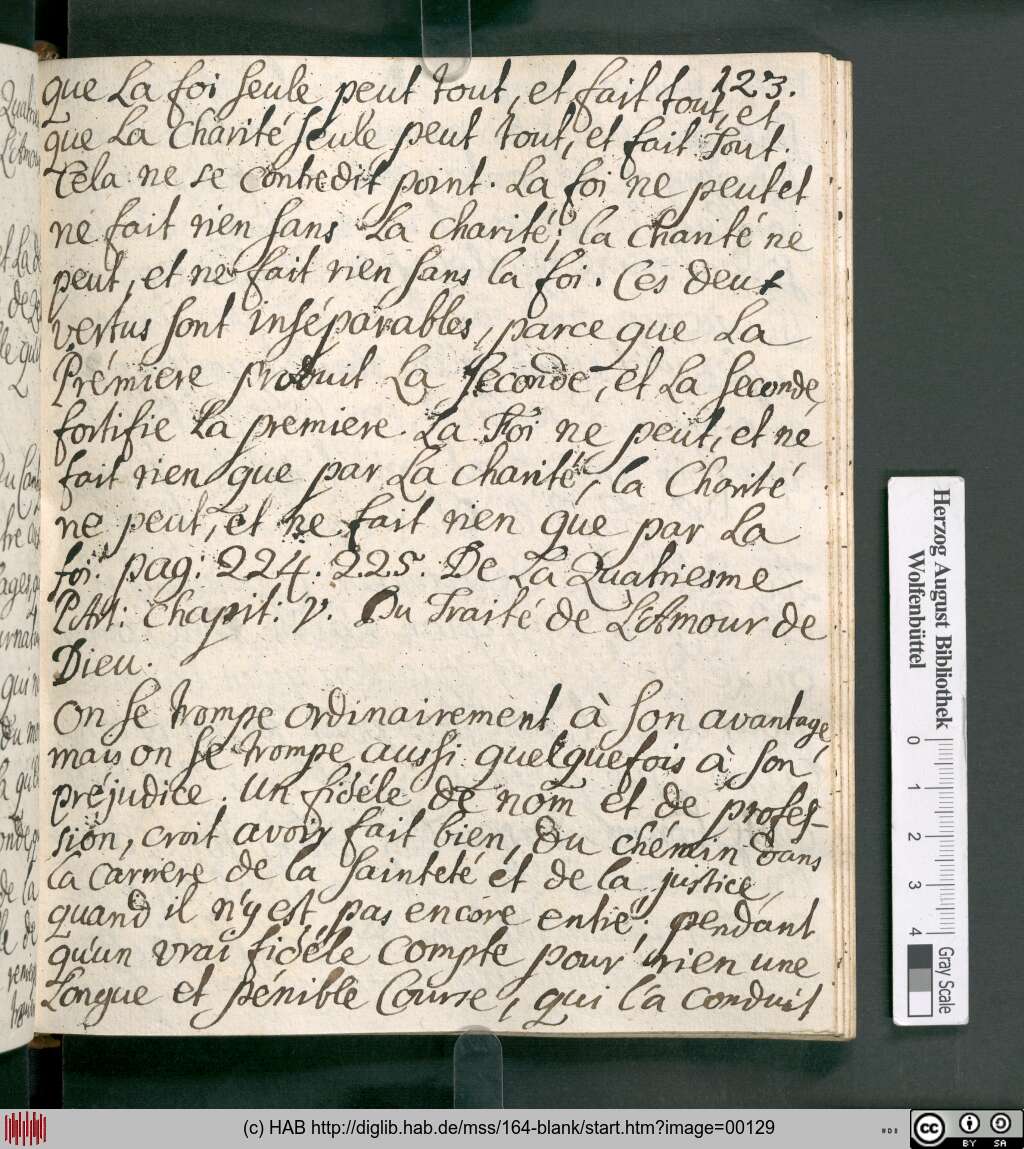 123.
que La foi seule peut tout, et fait tout, et
que La Charité seule peut tout, et fait Tout.
Cela ne se contredit point. La foi ne peut et
ne fait rien sans La charité; la charité ne
peut, et ne fait rien sans la foi. Ces deux
vertus sont inséparables, parce que La
Prémiere produit La seconde, et La seconde,
fortifie La premiere. La Foi ne peut, et ne
fait rien que par La charité, la Charité
ne peut, et ne fait rien que par La
foi. pag: 224. 225. De La Quatriesme
PArt: Chapit: V. Du Traité de L'Amour de
Dieu.
On se trompe ordinairement à son avantage,
mais on se trompe aussi quelquefois à son
préjudice. Un fidéle de nom et de profes-
sion, croit avoir fait bien, du chémin dans
la carriere de la sainteté et de la justice,
quand il n'y est pas encore entré; pendant
qu'un vrai fidéle compte pour rien une
Longue et pénible Course, qui l'a conduit
Herzog August Bibliothek
Wolfenbüttel
0 1 2 3 4
Gray Scale
(c) HAB http://diglib.hab.de/mss/164-blank/start.htm?image=00129
cc BY SA